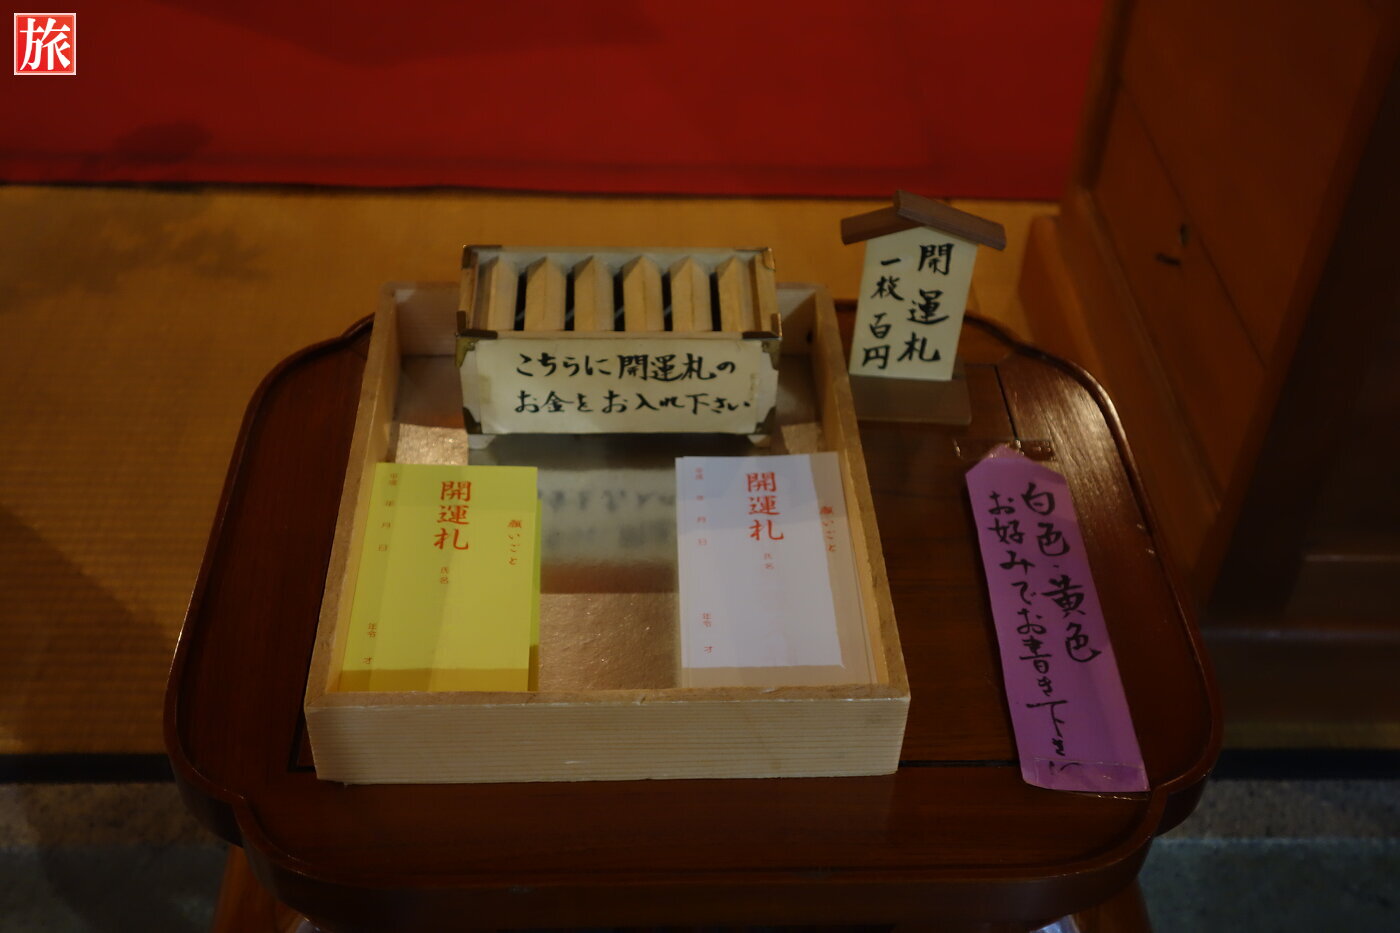 旅
開運札
一枚百円
こちらに開運札の
お金をお入れ下さい
願いごと
開運札
氏名
平成 年 月 日
年令 才
願いごと
開運札
氏名
平成 年 月 日
年令 才
白色・黄色
お好みでお書き下さい